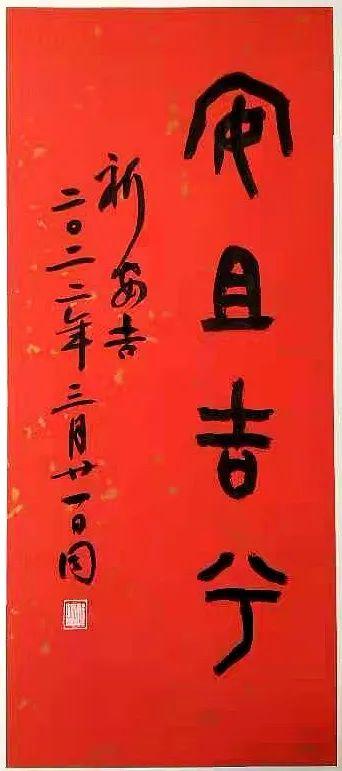 安且吉兮
祈安吉
二〇二二年三月廿一日